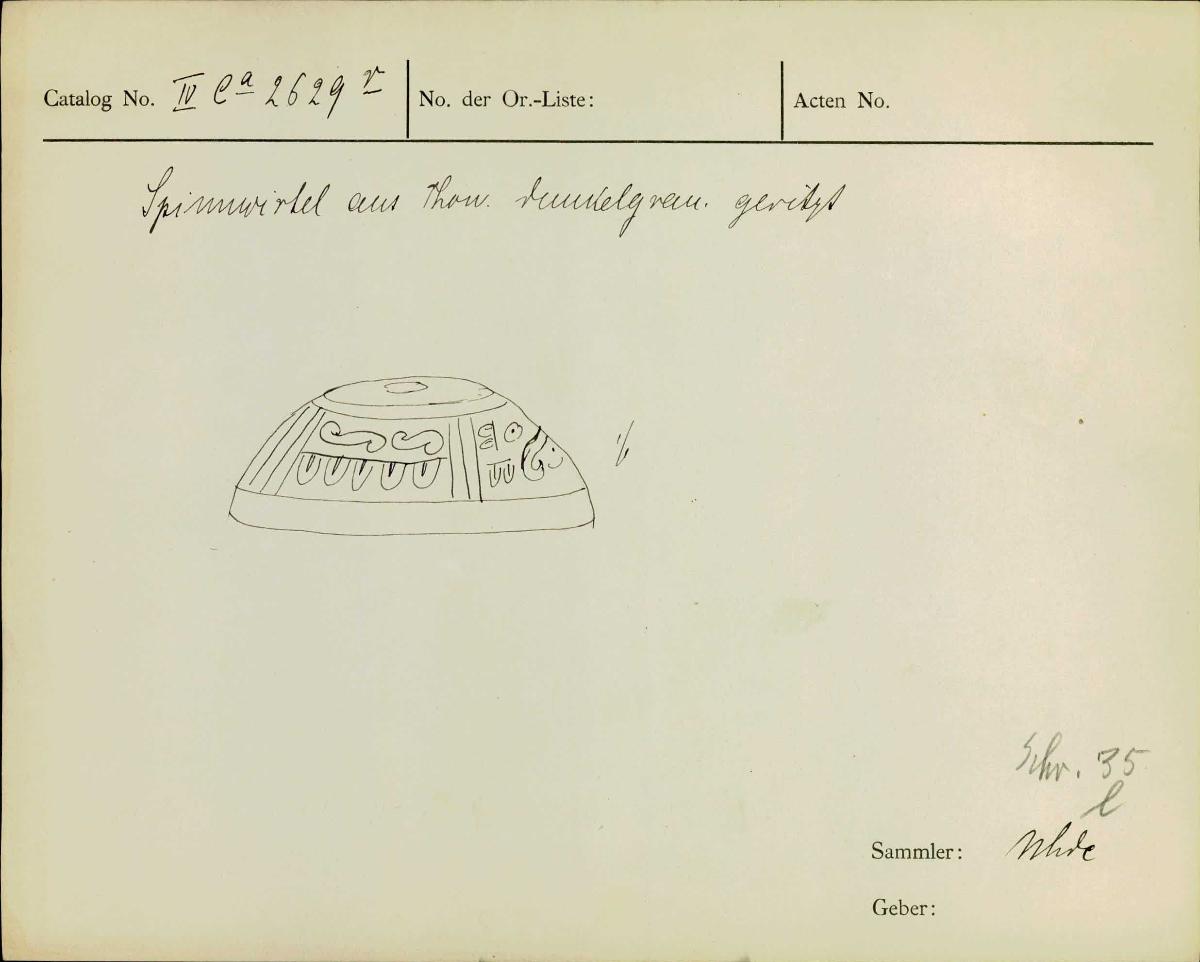 Catalog No. IV Ca 2629 r
No. der Or.-Liste:
Acten No.
Spinnwirtel aus Thon. dunkelgrau. geritzt
1/1
Schr. 35
l
Sammler: Uhde
Geber: